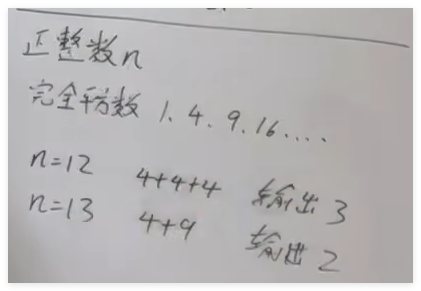 正整数n
完全平方数 1.4.9.16....
n=12 4+4+4 输出3
n=13 4+9 输出2